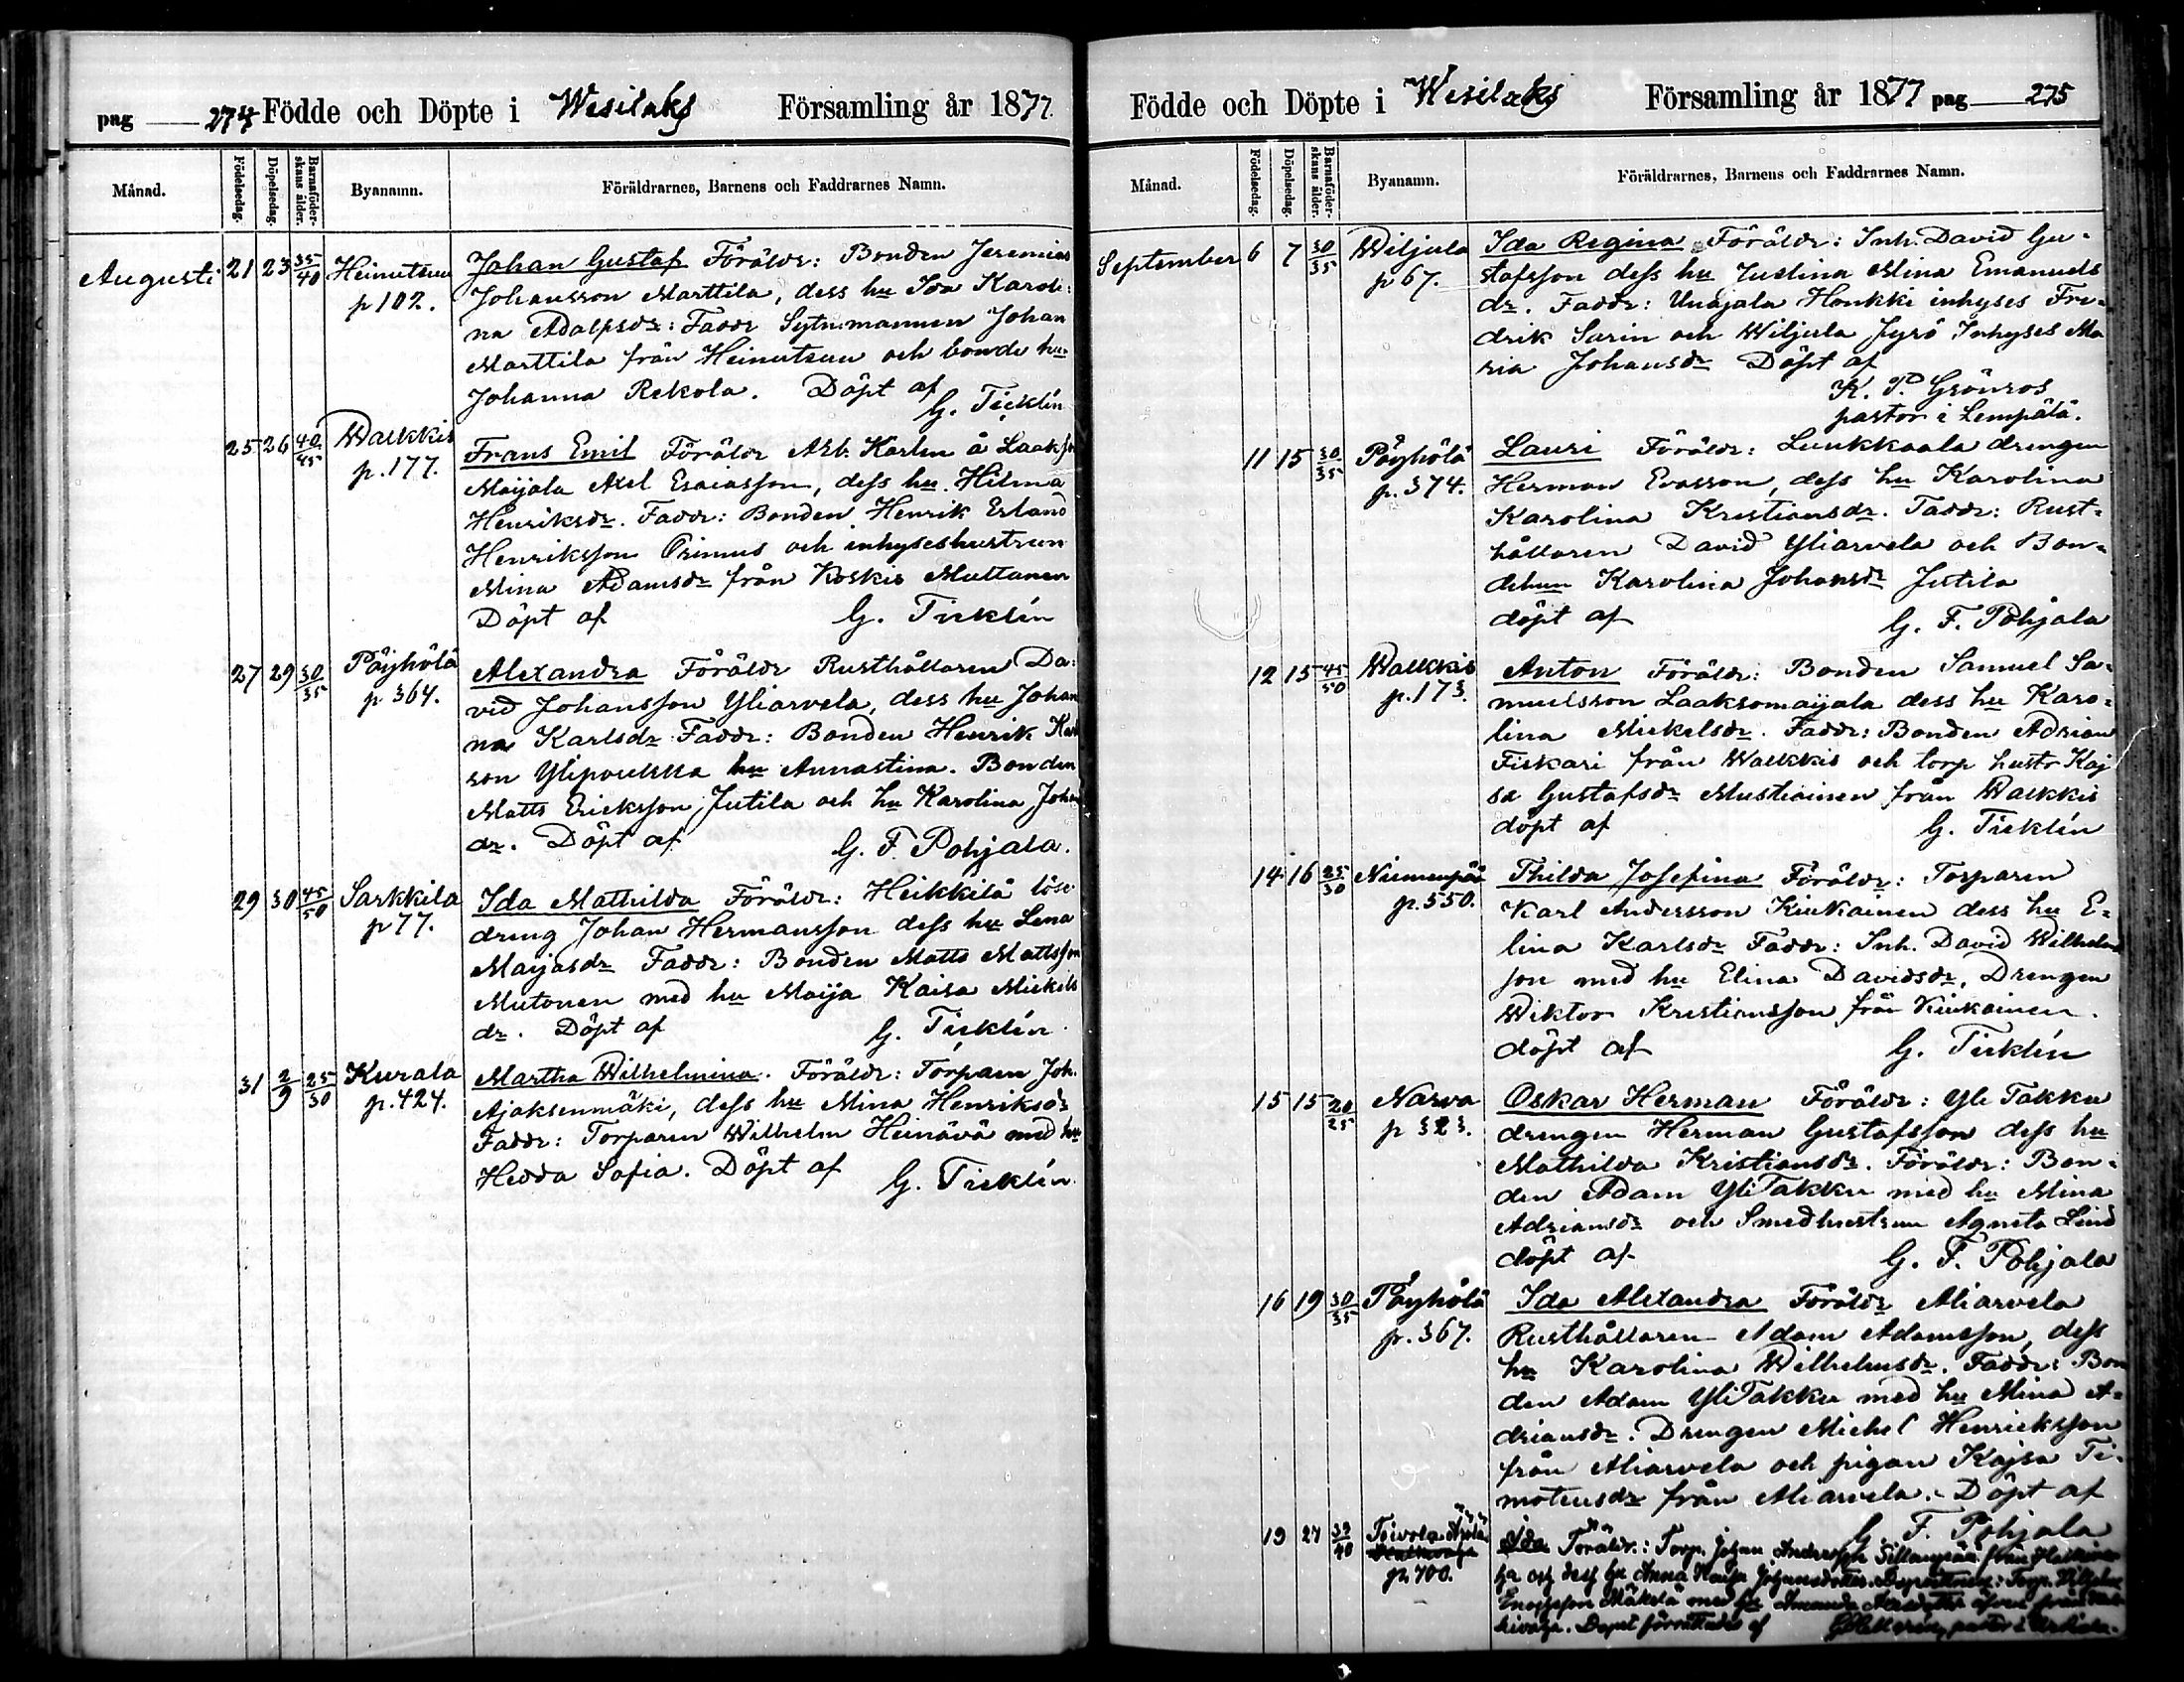 pag 274 Födde och Döpte i Wesilaks Församling år 1877.
Månad. Födelsedag. Döpelsedag. Barnaföderskans ålder. Byanamn. Föräldrarnes, Barnens och Faddrarnes Namn.
Augusti 21 23 35/40 Heinutsuu Johan Gustaf Föräldr: Bonden Jeremias
p 102. Johansson Marttila, dess hu Ida Karoli-
na Adolfsdr: Faddr Sytn.mannen Johan
Marttila från Heinutsuu och bonde hu
Johanna Rekola. Döpt af
G. Ticklén
25 26 40/45 Walkkis Frans Emil Föräldr Arb. Karlen å Laakso
p. 177. Maijala Axel Esaiasson, dess hu Hilma
Henriksdr. Faddr: Bonden Henrik Erland
Henriksson Primus och inhyseshustrun
Mina Adamsdr från Koskis Muttanen
Döpt af G. Ticklén
27 29 30/35 Pöyhölä Alexandra Föräldr Rusthållaren Da-
p 364. vid Johansson Yliarvela, dess hu Johan
na Karlsdr Faddr: Bonden Henrik Karl
son Ylipoukka hu Annastina. Bonden
Matts Ericksson Jutila och hu Karolina Johans
dr. Döpt af G. F. Pohjala.
29 30 45/50 Sarkkila Ida Mathilda Föräldr: Heikkilä löse
p 77. dreng Johan Hermansson dess hu Lena
Maijasdr Faddr: Bonden Matts Mattsson
Mutonen med hu Maija Kaisa Mickels
dr. Döpt af G. Ticklén.
31 2/9 25/30 Kurala Martha Wilhelmina. Föräldr: Torparn Joh.
p. 424. Ajaksenmäki, dess hu Mina Henriksdr
Faddr: Torparen Wilhelm Heinävä med hu
Hedda Sofia. Döpt af G. Ticklén.
Födde och Döpte i Wesilaks Församling år 1877 pag 275
Månad. Födelsedag. Döpelsedag. Barnaföderskans ålder. Byanamn. Föräldrarnes, Barnens och Faddrarnes Namn.
September 6 7 30/35 Wiljula Ida Regina Föräldr: Inh. David Gu-
p 67. stafsson dess hu Justina Mina Emanuels
dr. Faddr: Unajala Honkki inhyses Fre-
drik Sarin och Wiljula Jyrö Inhyses Ma
ria Johansdr Döpt af
K. P. Grönros
pastor i Lempälä.
11 15 30/35 Pöyhölä Lauri Föräldr: Luukkaala drengen
p. 374. Herman Evasson, dess hu Karolina
Karolina Kristiansdr. Faddr: Rust-
hållaren David Yliarvela och Bon-
dehun Karolina Johansdr Jutila
döpt af G. F. Pohjala
12 15 45/50 Walkkis Anton Föräldr: Bonden Samuel Sa-
p. 173. muelsson Laaksomaijala dess hu Karo-
lina Mickelsdr. Faddr: Bonden Adrian
Fiskari från Walkkis och torp hustr Kaj
sa Gustafsdr Mustiainen från Walkkis
döpt af G. Ticklén
14 16 25/30 Niemenpää Thilda Josefina Föräldr: Torparen
p. 550. Karl Andersson Kiukainen dess hu E-
lina Karlsdr Faddr: Inh. David Wilhelms
son med hu Elina Davidsdr, Drengen
Wiktor Kristiansson från Kiukainen.
döpt af G. Ticklén
15 15 20/25 Narva Oskar Herman Föräldr: Yli Takku
p 323. drengen Herman Gustafsson dess hu
Mathilda Kristiansdr. Föräldr: Bon-
den Adam YliTakku med hu Mina
Adriansdr och Smedhustrun Agneta Lind
döpt af G. F. Pohjala
16 19 30/35 Pöyhölä Ida Alexandra Föräldr Aliarvela
p. 367. Rusthållaren Adam Adamsson, dess
hu Karolina Wilhelmsdr. Faddr: Bon
den Adam YliTakku med hu Mina A-
driansdr. Drengen Michel Henricksson
från Aliarvela och pigan Kajsa Ti-
moteusdr från Aliarvela. Döpt af
G. F. Pohjala
19 27 39/40 Toivola Ida Föräldr.: Torp. Johan Andersson Sillanpää från
p. 700. och dess hu Anna Johansdotter. Torp.
Enoksson Mäkelä med hu Amanda
Döpt förrättades af pastor i